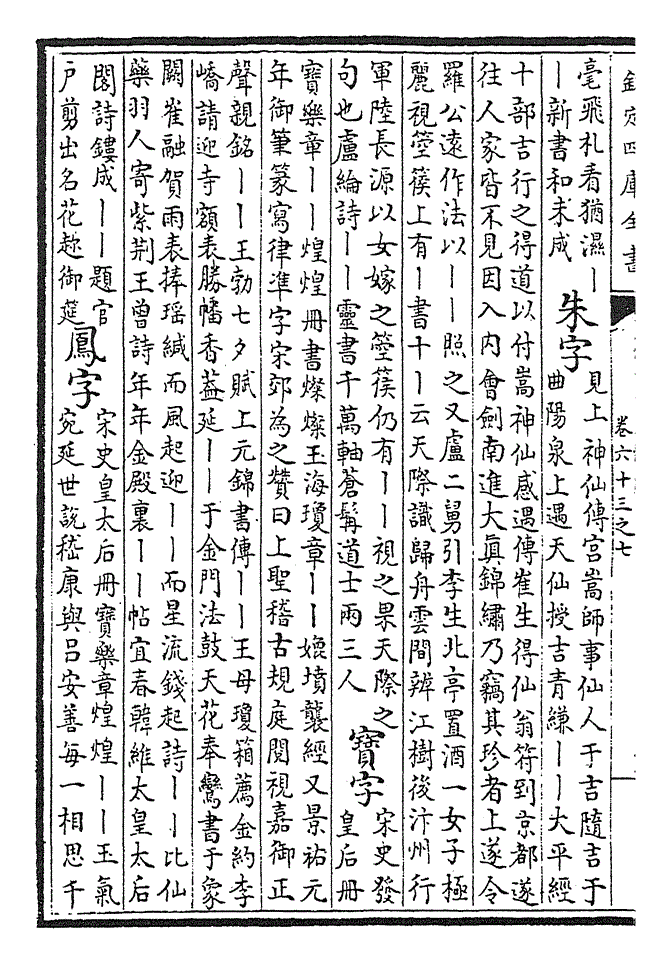 欽定四庫全書
卷六十三之七
毫飛札看猶濕丨
丨新書和未成
朱字
見上神仙傳宫嵩師事仙人于吉隨吉于
曲陽泉上遇天仙授吉青縑丨丨大平經
十部吉行之得道以付嵩神仙感遇傳崔生得仙翁符到京都遂
往人家皆不見因入内會劍南進大真錦繡乃竊其珍者上遂令
羅公遠作法以丨丨照之又盧二舅引李生北亭置酒一女子極
麗視箜篌上有丨書十丨云天際識歸舟雲間辨江樹後汴州行
軍陸長源以女嫁之箜篌仍有丨丨視之果天際之
句也盧綸詩丨丨靈書千萬軸蒼髯道士兩三人
寶字
宋史發
皇后册
寶樂章丨丨煌煌册書燦燦玉海瓊章丨丨媲墳襲經又景祐元
年御筆篆寫律準字宋郊為之贊曰上聖稽古規庭閲視嘉御正
聲親銘丨丨王勃七夕賦上元錦書傳丨丨王母瓊箱薦金約李
嶠請迎寺額表勝幡香葢延丨丨于金門法鼓天花奉鸞書于象
闕崔融賀雨表捧瑶緘而風起迎丨丨而星流錢起詩丨丨比仙
藥羽人寄紫荆王曾詩年年金殿裏丨丨帖宜春韓維太皇太后
閤詩鏤成丨丨題官
户剪出名花趂御筵
鳳字
宋史皇太后册寶樂章煌煌丨丨玉氣
宛延世説嵇康與吕安善每一相思千